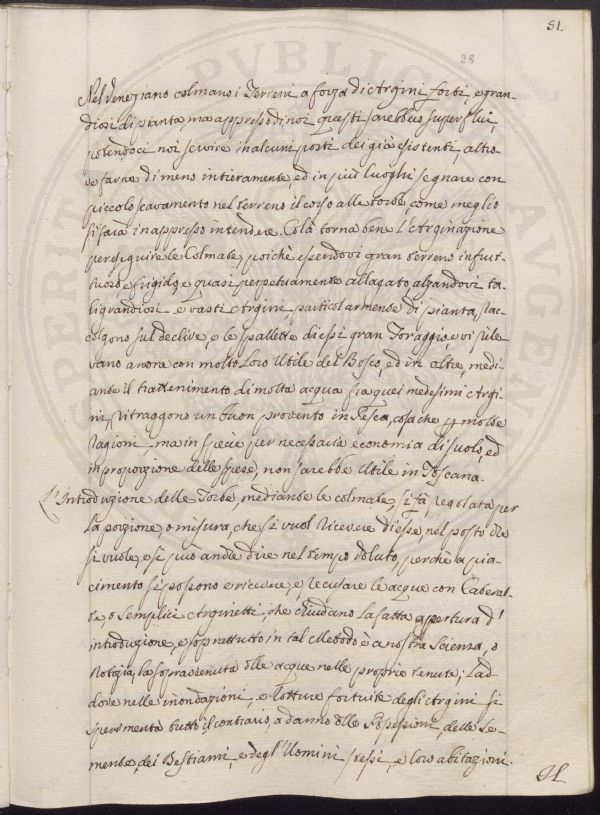 51.
26
Nel Veneziano colmano i Terreni a forza di Argini forti, e gran-
diosi di pianta, ma appresso di noi questi sarebbero superflui,
potendoci noi servire in alcuni posti dei già esistenti, altro-
ve farne di meno intieramente, ed in più luoghi segnare con
piccolo scavamento nel terreno il corso alle torbe, come meglio
si farà in appresso intendere. Colà torna bene l'Arginazione
per eseguire le Colmate, poichè essendovi gran terreno infrut-
tuoso e frigido, e quasi perpetuamente allagato, alzandovi ta-
li grandiosi e vasti Argini, particolarmente di pianta, rac-
colgono sul declive, e le spallette di essi gran foraggio, e vi rile-
vano ancora con molto Loro Utile del Bosco, ed in oltre, medi-
ante il trattenimento di molta acqua fra quei medesimi Argi-
ni, Ritraggono un buon provento in Pesca, cosa che p molte
Ragioni, ma in specie per necessaria economia di suolo, ed
in proporzione delle spese, non sarebbe Utile in Toscana.
L'introduzione delle Torbe, mediante le colmate, si fà regolata per
la porzione, o misura, che si vuol Ricevere di esse, nel posto ove
si vuole, e si può anche dire nel tempo voluto, perchè a pia-
cimento si possono e ricevere, e recusare le acque con Caterat-
te, o Semplici Arginetti, che chiudano la fatta apertura d'
introduzione, e soprattutto in tal Metodo è a nostra Scienza, o
Notizia, la sopravvenuta delle acque nelle proprie tenute; Lad
dove nelle inondazioni, e Rotture fortuite degli Argini si
sperimenta tutto il contrario, a danno delle Possessioni, delle Se-
mente, dei Bestiami, e degl'Uomini stessi, e loro abitazioni.
Il
PVBLICA
AVGENT